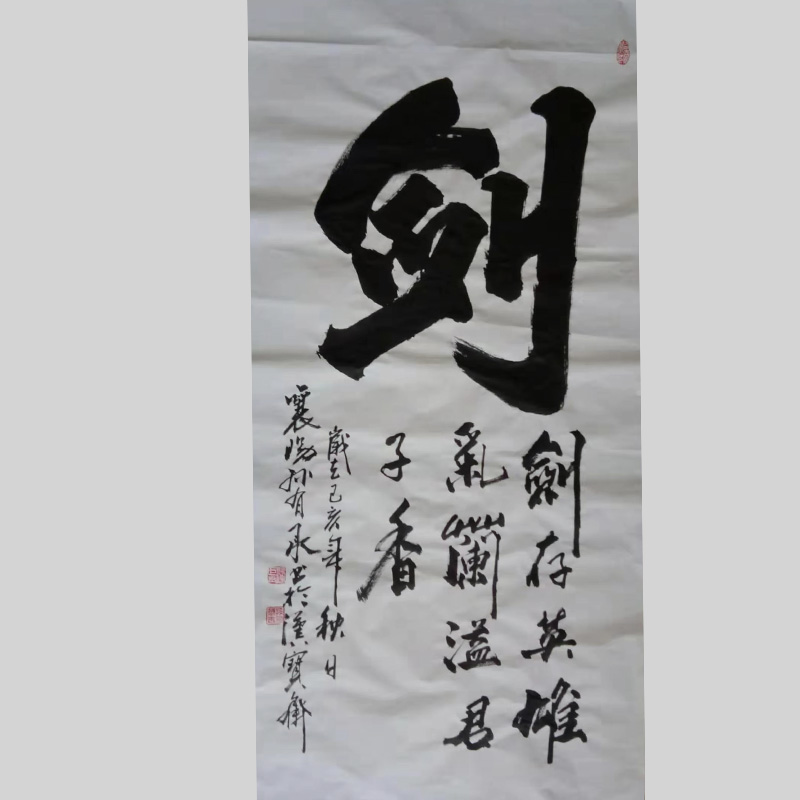 劍
劍存英雄
氣蘭溢君
子香
歲在己亥年秋日
襄陽孙有承书於漢寶齋